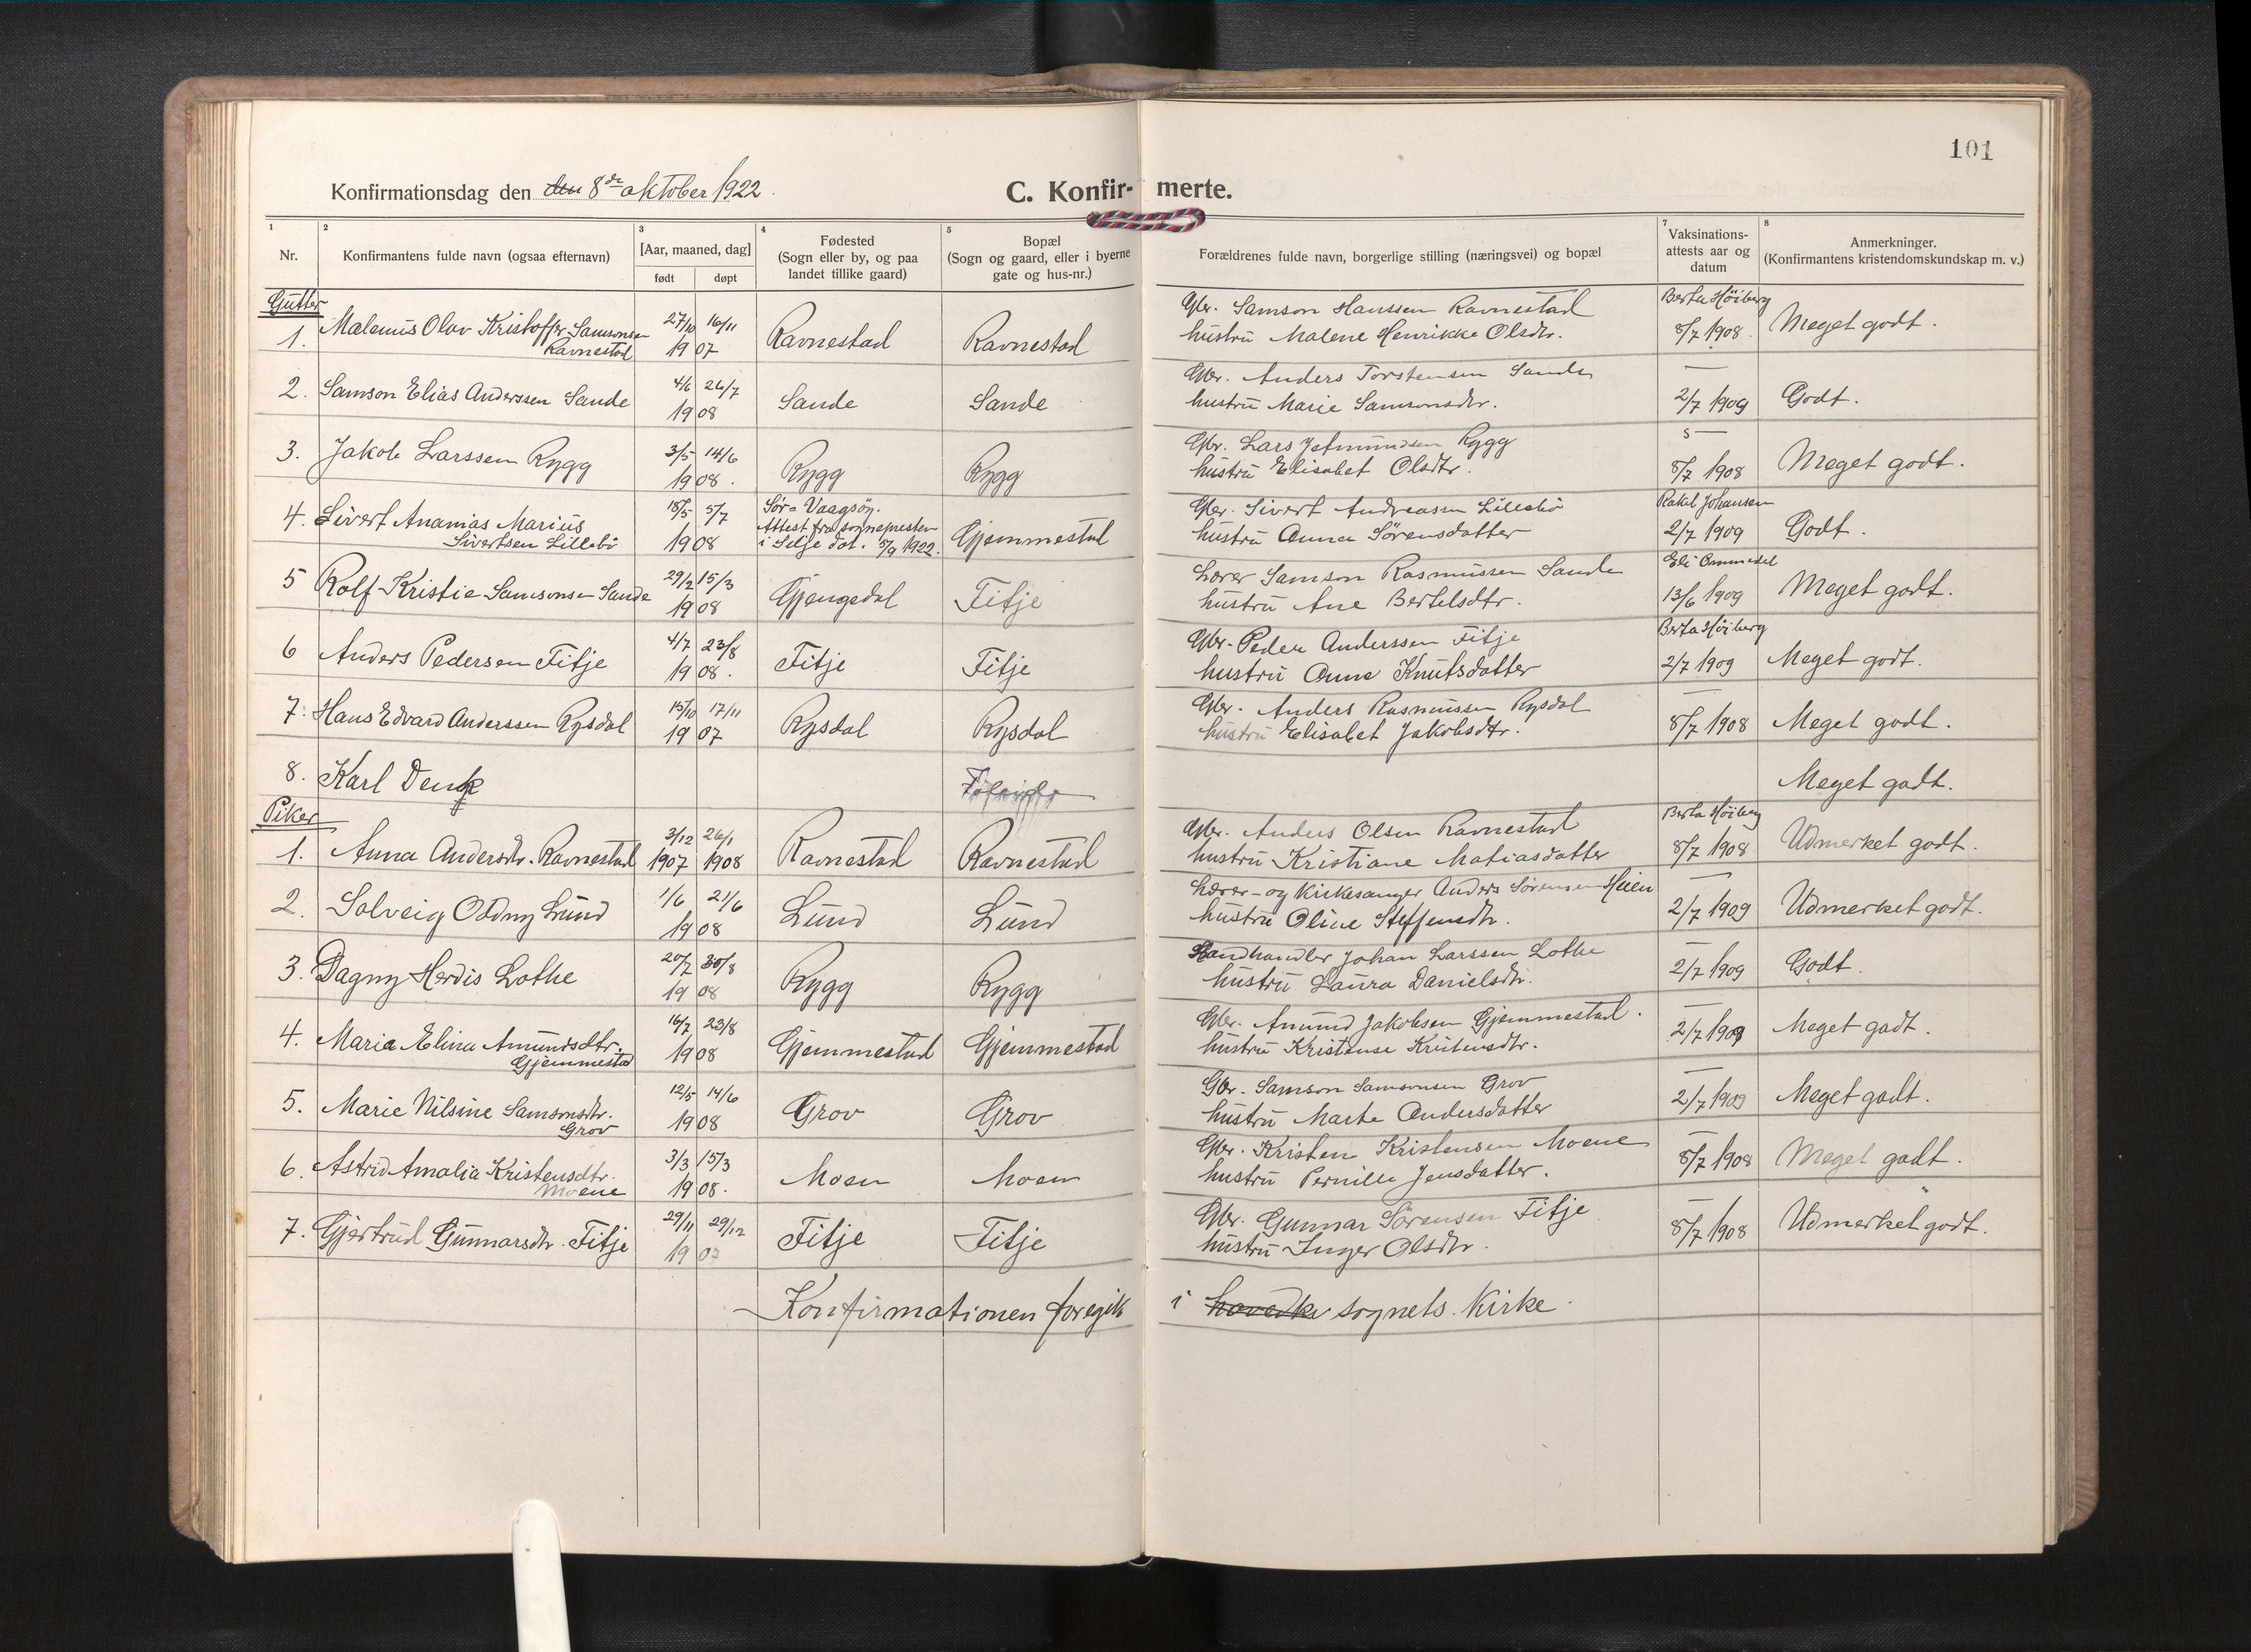 101
Konfirmationsdag den den 8de oktober 1922.
C. Konfir- merte.
1 2 3 4 5 7 8
Nr.
Konfirmantens fulde navn (ogsaa efternavn)
[Aar, maaned, dag]
født døpt
Fødested
(Sogn eller by, og paa
landet tillike gaard)
Bopæl
(Sogn og gaard, eller i byerne
gate og hus-nr.)
Forældrenes fulde navn, borgerlige stilling (næringsvei) og bopæl
Vaksinations-
attests aar og
datum
Anmerkninger.
(Konfirmantens kristendomskundskap m. v.)
Gutter
1. Malenus Olav Kristoffer Samsonsen
Ravnestad
27/10 16/11
1907
Ravnestad
Ravnestad
Gbr. Samson Hanssen Ravnestad
hustru Malene Henrikke Olsdtr.
Berta Höiberg
8/7 1908.
Meget godt.
2. Samson Elias Anderssen Sande
4/6 26/7
1908
Sande
Sande
Gbr. Anders Torstensen Sande
hustru Marie Samsonsdtr.
—
2/7 1909
Godt.
3. Jakob Larssen Rygg
3/5 14/6
1908.
Rygg
Rygg
Gbr. Lars Jetmundsen Rygg
hustru Elisabet Olsdtr.
—
8/7 1908
Meget godt.
4. Sivert Ananias Marius
Sivertsen Lillebö
18/5 5/7
1908
Sör-Vaagsöy.
Attest fra sognepresten
i Selje dat. 5/9 1922.
Gjemmestad
Gbr. Sivert Andreassen Lillebö
hustru Anna Sörensdatter
Rakel Johansen
2/7 1909
Godt.
5 Rolf Kristie Samsonsen Sande
29/2 15/3
1908
Gjengedal
Fitje
Lærer Samson Rasmussen Sande
hustru Ane Bertelsdtr.
Eli Ommedal
13/6 1909
Meget godt.
6 Anders Pedersen Fitje
4/7 23/8
1908.
Fitje
Fitje
Gbr. Peder Anderssen Fitje
hustru Anne Knutsdatter
Berta Höiberg
2/7 1909
Meget godt.
7. Hans Edvard Anderssen Rysdal
15/10 17/11
1907
Rysdal
Rysdal
Gbr. Anders Rasmussen Rysdal
hustru Elisabet Jakobsdtr.
—
8/7 1908
Meget godt.
8. Karl Denk
Meget godt.
Piker
1. Anna Andersdtr. Ravnestad
3/12 26/1
1907 1908
Ravnestad
Ravnestad
Gbr. Anders Olsen Ravnestad
hustru Kristiane Matiasdatter
Berta Höiberg
8/7 1908
Udmerket godt.
2. Solveig Oddny Lund
1/6 21/6
1908
Lund
Lund
Lærer- og kirkesanger Anders Sörensen Heien
hustru Oline Steffensdtr.
—
2/7 1909
Udmerket godt.
3. Dagny Herdis Lothe
20/7 30/8
1908
Rygg
Rygg
Landhandler Johan Larssen Lothe
hustru Laura Danielsdtr.
—
2/7 1909
Godt.
4. Maria Elina Amundsdtr.
Gjemmestad
16/7 23/8
1908
Gjemmestad
Gjemmestad
Gbr. Amund Jakobsen Gjemmestad.
hustru Kristense Kristensdtr.
—
2/7 1909
Meget godt.
5. Marie Nilsine Samsonsdtr.
Grov
12/5 14/6
1908
Grov
Grov
Gbr. Samson Samsonsen Grov
hustru Marte Andersdatter
—
2/7 1909
Meget godt.
6. Astrid Amalia Kristensdtr.
Moene
3/3 15/3
1908.
Moen
Moen
Gbr. Kristen Kristensen Moene
hustru Pernille Jensdatter.
—
8/7 1908
Meget godt.
7. Gjertrud Gunnarsdtr. Fitje
29/11 29/12
1907
Fitje
Fitje
Gbr. Gunnar Sörensen Fitje
hustru Inger Olsdtr.
—
8/7 1908
Udmerket godt.
Konfirmationen foregik i hovedki sognets kirke.